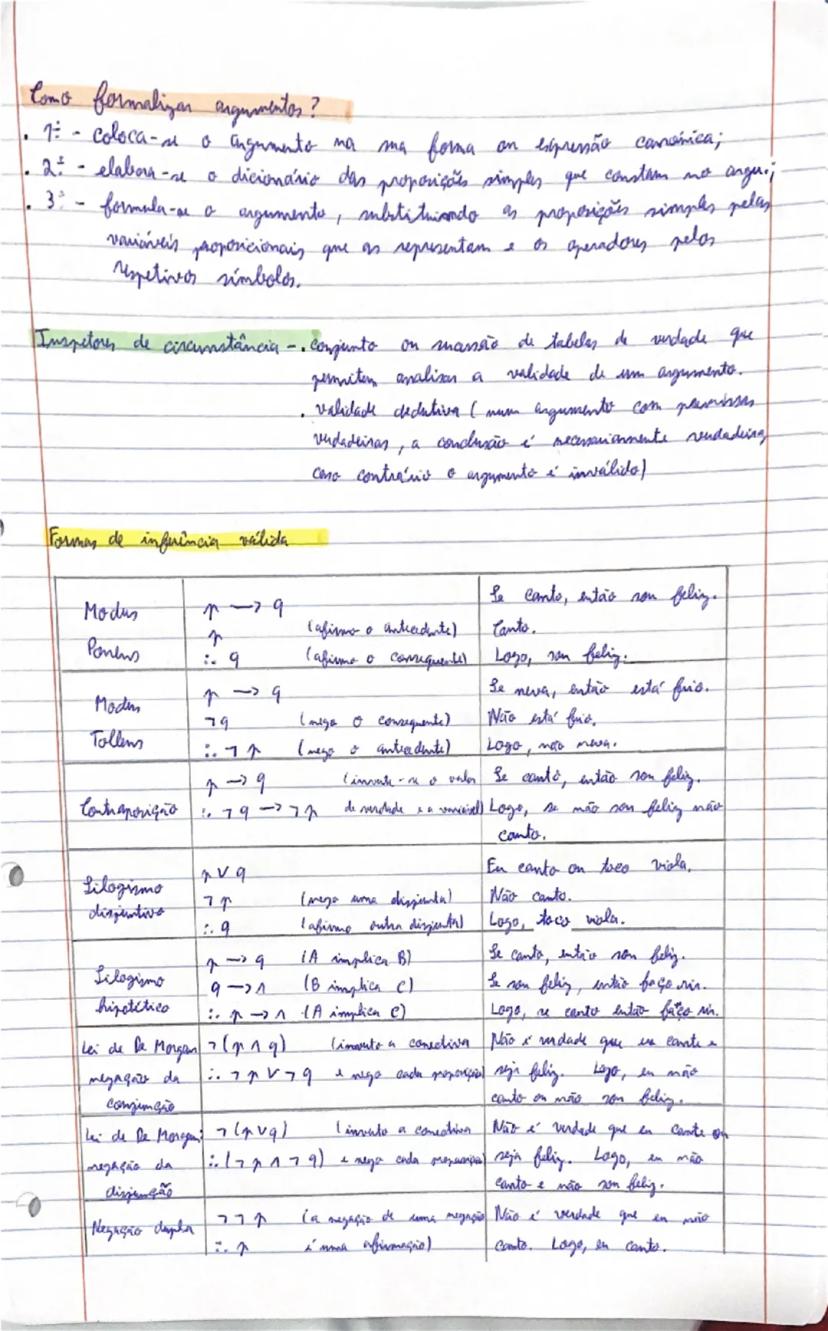 Como formalizar argumentos?
. 1º - coloca-se o argumento na sua forma ou expressão canónica;
. 2º - elabora-se o dicionário das proposições simples que constam no argu.;
. 3º - formula-se o argumento, substituindo as proposições simples pelas
variáveis proposicionais que as representam e os operadores pelos
respetivos símbolos.
Inspetores de circunstância - . conjunto ou sucessão de tabelas de verdade que
permitem analisar a validade de um argumento.
. validade dedutiva (num argumento com premissas
verdadeiras, a conclusão é necessariamente verdadeira,
caso contrário o argumento é inválido)
Formas de inferência válida
Modus Ponens
p → q
p (afirmo o antecedente)
∴ q (afirmo o consequente)
Se canto, então sou feliz.
Canto.
Logo, sou feliz.
Modus Tollens
p → q
¬q (nego o consequente)
∴ ¬p (nego o antecedente)
Se neva, então está frio.
Não está frio.
Logo, não neva.
Contraposição
p → q (inverte-se o valor
∴ ¬q → ¬p de verdade e a variável)
Se canto, então sou feliz.
Logo, se não sou feliz não
canto.
Silogismo
disjuntivo
p ∨ q
¬p (nego uma disjunta)
∴ q (afirmo outra disjunta)
Eu canto ou toco viola.
Não canto.
Logo, toco viola.
Silogismo
hipotético
p → q (A implica B)
q → r (B implica C)
∴ p → r (A implica C)
Se canto, então sou feliz.
Se sou feliz, então faço rir.
Logo, se canto então faço rir.
Lei de De Morgan
negação da
conjunção
¬(p ∧ q) (inverto a conectiva
∴ ¬p ∨ ¬q e nego cada proposição)
Não é verdade que eu cante e
seja feliz. Logo, eu não
canto ou não sou feliz.
Lei de De Morgan:
negação da
disjunção
¬(p ∨ q) (inverto a conectiva
∴ (¬p ∧ ¬q) e nego cada proposição)
Não é verdade que eu cante ou
seja feliz. Logo, eu não
canto e não sou feliz.
Negação dupla
¬¬p (a negação de uma negação
∴ p é uma afirmação)
Não é verdade que eu não
canto. Logo, eu canto.